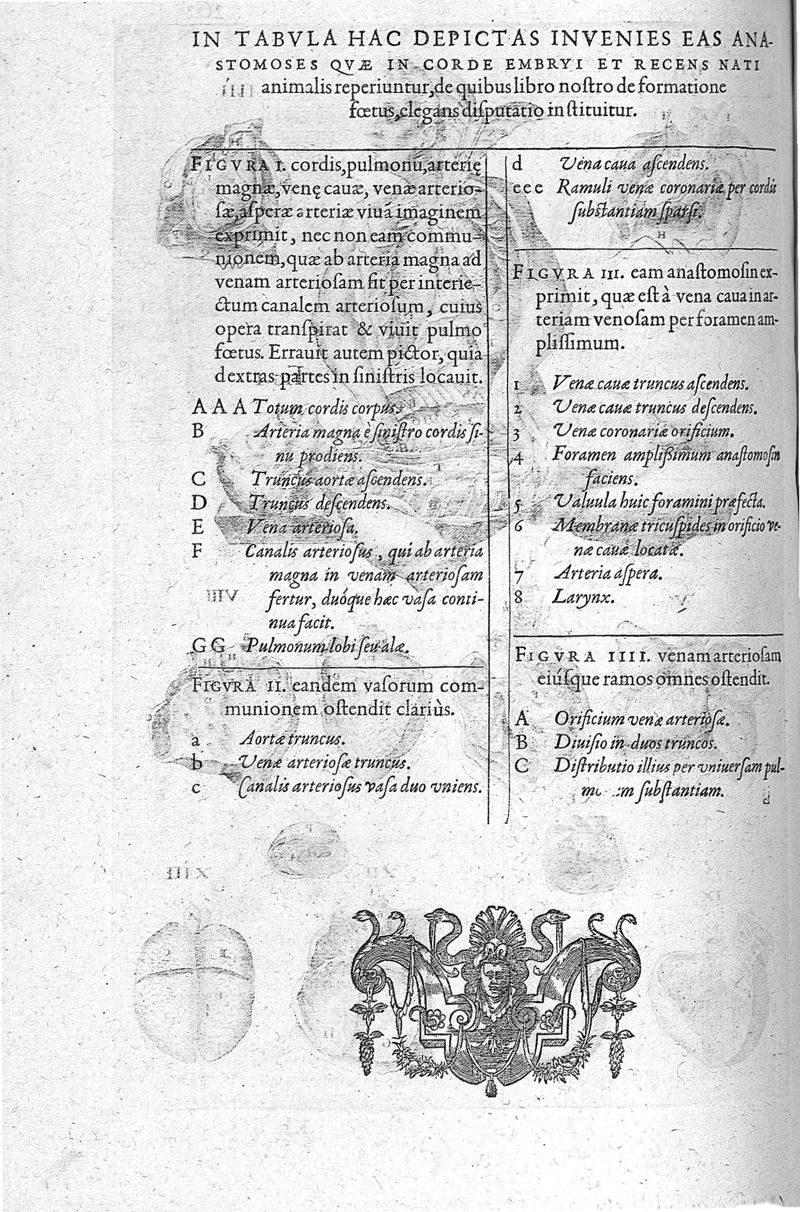 IN TABVLA HAC DEPICTAS INVENIES EAS ANA-
STOMOSES QVÆ IN CORDE EMBRYI ET RECENS NATI
animalis reperiuntur, de quibus libro nostro de formatione
fœtus, elegans disputatio instituitur.
FIGVRA I. cordis, pulmonũ, arterię
magnæ, venę cauæ, venæ arterio-
sæ, asperæ arteriæ viuã imaginem
exprimit, nec non eam commu-
nionem, quæ ab arteria magna ad
venam arteriosam fit per interie-
ctum canalem arteriosum, cuius
opera transpirat & viuit pulmo
fœtus. Errauit autem pictor, quia
dextras partes in sinistris locauit.
A A A Totum cordis corpus.
B Arteria magna è sinistro cordis si-
nu prodiens.
C Truncus aortæ ascendens.
D Truncus descendens.
E Vena arteriosa.
F Canalis arteriosus, qui ab arteria
magna in venam arteriosam
fertur, duóque hæc vasa conti-
nua facit.
G G Pulmonum lobi seu alæ.
FIGVRA II. eandem vasorum com-
munionem ostendit clariùs.
a Aortæ truncus.
b Venæ arteriosæ truncus.
c Canalis arteriosus vasa duo vniens.
d Vena caua ascendens.
e e e Ramuli venæ coronariæ per cordis
substantiam sparsi.
FIGVRA III. eam anastomosin ex-
primit, quæ est à vena caua in ar-
teriam venosam per foramen am-
plissimum.
1 Venæ cauæ truncus ascendens.
2 Venæ cauæ truncus descendens.
3 Venæ coronariæ orificium.
4 Foramen amplissimum anastomosin
faciens.
5 Valuula huic foramini præfecta.
6 Membranæ tricuspides in orificio ve-
næ cauæ locatæ.
7 Arteria aspera.
8 Larynx.
FIGVRA IIII. venam arteriosam
eiúsque ramos omnes ostendit.
A Orificium venæ arteriosæ.
B Diuisio in duos truncos.
C Distributio illius per vniuersam pul-
substantiam.